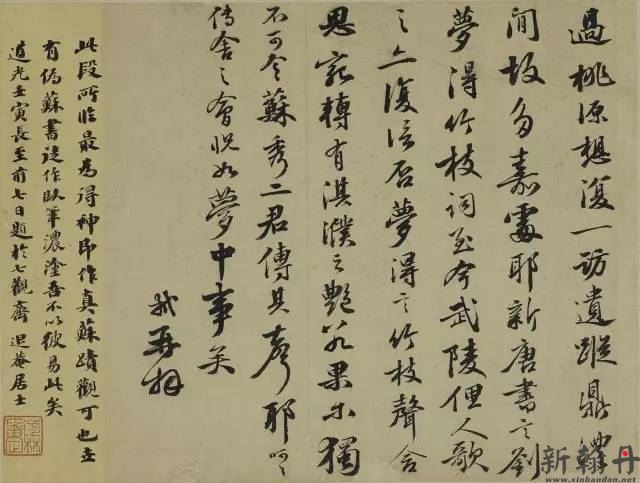 過桃源想復一訪遺蹤鼎澧
間故多嘉處耶新唐書言劉
夢得竹枝詞至今武陵俚人歌
之亦復信否夢得言竹枝聲含
思宛轉有淇濮之艷若果尔獨
不可令蘇秀二君傳其聲耶呵〻
傳舍之會恍如夢中事矣
軾再拜
此段所臨最為得神即作真蘇蹟觀可也世
有偽蘇書徒作臥筆濃塗吾不以彼易此矣
道光壬寅長至前七日題於七觀齋 退菴居士
新翰丹
www.xinhandan.net